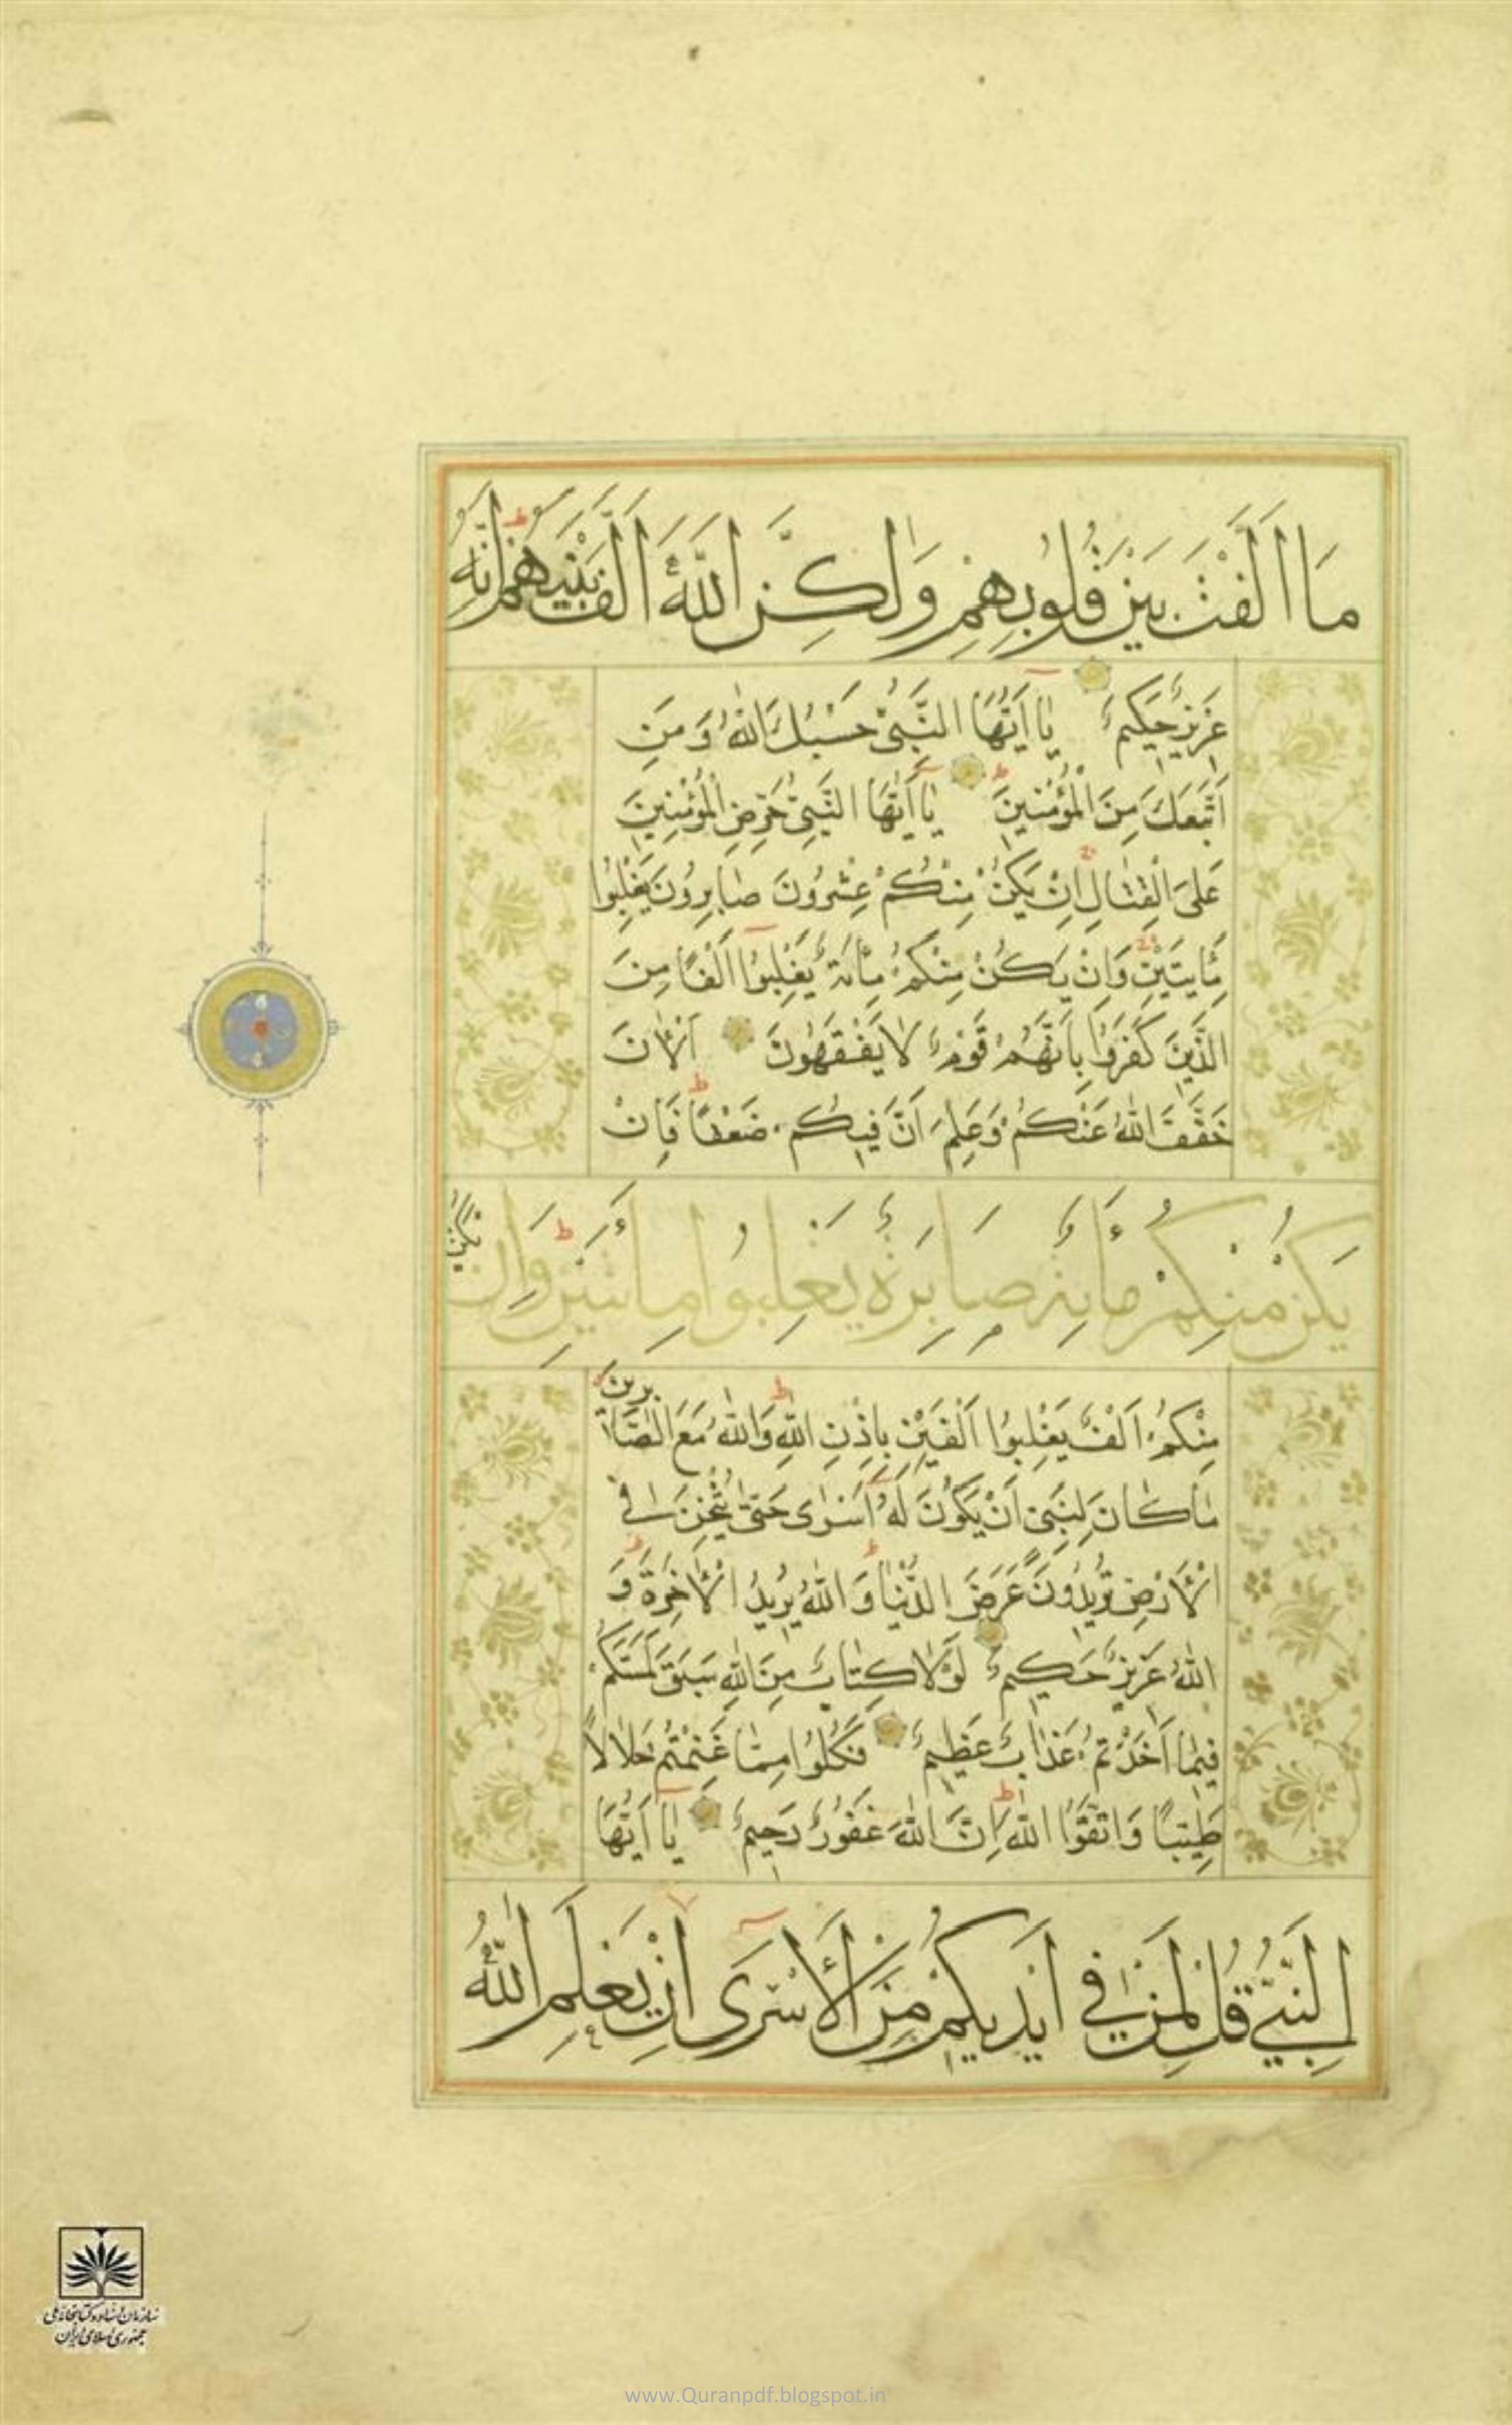 مَا اَلَّفْتَ بَيْنَ قُلُوبِهِمْ وَلٰكِنَّ اللّٰهَ اَلَّفَ بَيْنَهُمْ اِنَّهُ
عَزِيزٌ حَكِيمٌ يَا اَيُّهَا النَّبِيُّ حَسْبُكَ اللّٰهُ وَمَنِ
اتَّبَعَكَ مِنَ الْمُؤْمِنِينَ يَا اَيُّهَا النَّبِيُّ حَرِّضِ الْمُؤْمِنِينَ
عَلَى الْقِتَالِ اِنْ يَكُنْ مِنْكُمْ عِشْرُونَ صَابِرُونَ يَغْلِبُوا
مِأَيتَيْنِ وَاِنْ يَكُنْ مِنْكُمْ مِائَةٌ يَغْلِبُوا اَلْفًا مِنَ
الَّذِينَ كَفَرُوا بِاَنَّهُمْ قَوْمٌ لَا يَفْقَهُونَ اَلْاٰنَ
خَفَّفَ اللّٰهُ عَنْكُمْ وَعَلِمَ اَنَّ فِيكُمْ ضَعْفًا فَاِنْ
يَكُنْ مِنْكُمْ مِائَةٌ صَابِرَةٌ يَغْلِبُوا مِائَتَيْنِ وَاِنْ يَكُنْ
مِنْكُمْ اَلْفٌ يَغْلِبُوا اَلْفَيْنِ بِاِذْنِ اللّٰهِ وَاللّٰهُ مَعَ الصَّابِرِينَ
مَا كَانَ لِنَبِيٍّ اَنْ يَكُونَ لَهُ اَسْرٰى حَتّٰى يُثْخِنَ فِي
الْاَرْضِ تُرِيدُونَ عَرَضَ الدُّنْيَا وَاللّٰهُ يُرِيدُ الْاٰخِرَةَ وَ
اللّٰهُ عَزِيزٌ حَكِيمٌ لَوْلَا كِتَابٌ مِنَ اللّٰهِ سَبَقَ لَمَسَّكُمْ
فِيمَا اَخَذْتُمْ عَذَابٌ عَظِيمٌ فَكُلُوا مِمَّا غَنِمْتُمْ حَلَالًا
طَيِّبًا وَاتَّقُوا اللّٰهَ اِنَّ اللّٰهَ غَفُورٌ رَحِيمٌ يَا اَيُّهَا
النَّبِيُّ قُلْ لِمَنْ فِي اَيْدِيكُمْ مِنَ الْاَسْرَى اِنْ يَعْلَمِ اللّٰهُ
سازمان اسناد و کتابخانه ملی
جمهوری اسلامی ایران
www.Quranpdf.blogspot.in